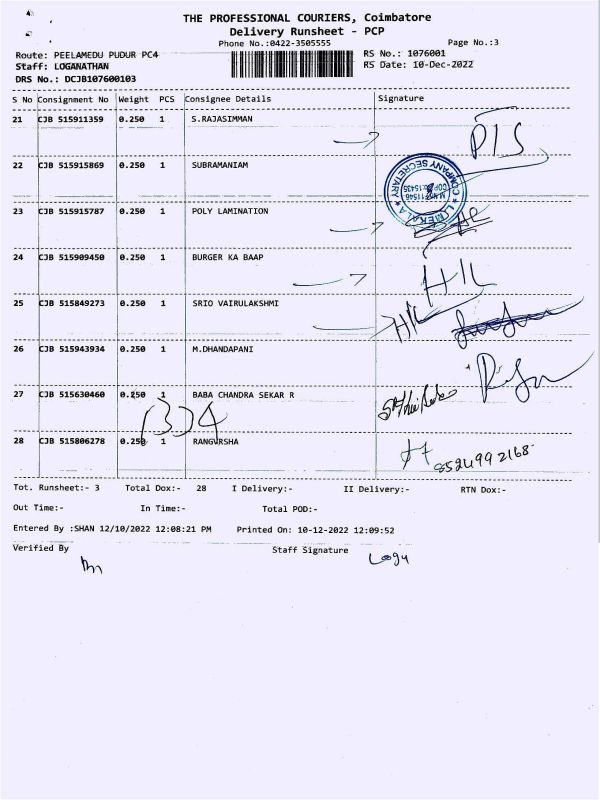 THE PROFESSIONAL COURIERS, Coimbatore
Delivery Runsheet - PCP
Phone No.:0422-3505555 Page No.:3
Route: PEELAMEDU PUDUR PC4 RS No.: 1076001
Staff: LOGANATHAN RS Date: 10-Dec-2022
DRS No.: DCJB107600103
S No Consignment No Weight PCS Consignee Details Signature
21 CJB 515911359 0.250 1 S.RAJASIMMAN
22 CJB 515915869 0.250 1 SUBRAMANIAM
COMPANY SECRETARY
L.MEKALA
23 CJB 515915787 0.250 1 POLY LAMINATION
24 CJB 515909450 0.250 1 BURGER KA BAAP
25 CJB 515849273 0.250 1 SRIO VAIRULAKSHMI
26 CJB 515943934 0.250 1 M.DHANDAPANI
27 CJB 515630460 0.250 1 BABA CHANDRA SEKAR R
1334
28 CJB 515806278 0.250 RANGVRSHA
8524992168
Tot. Runsheet:- 3 Total Dox:- 28 I Delivery:- II Delivery:- RTN Dox:-
Out Time:- In Time:- Total POD:-
Entered By :SHAN 12/10/2022 12:08:21 PM Printed On: 10-12-2022 12:09:52
Verified By Staff Signature
Logu